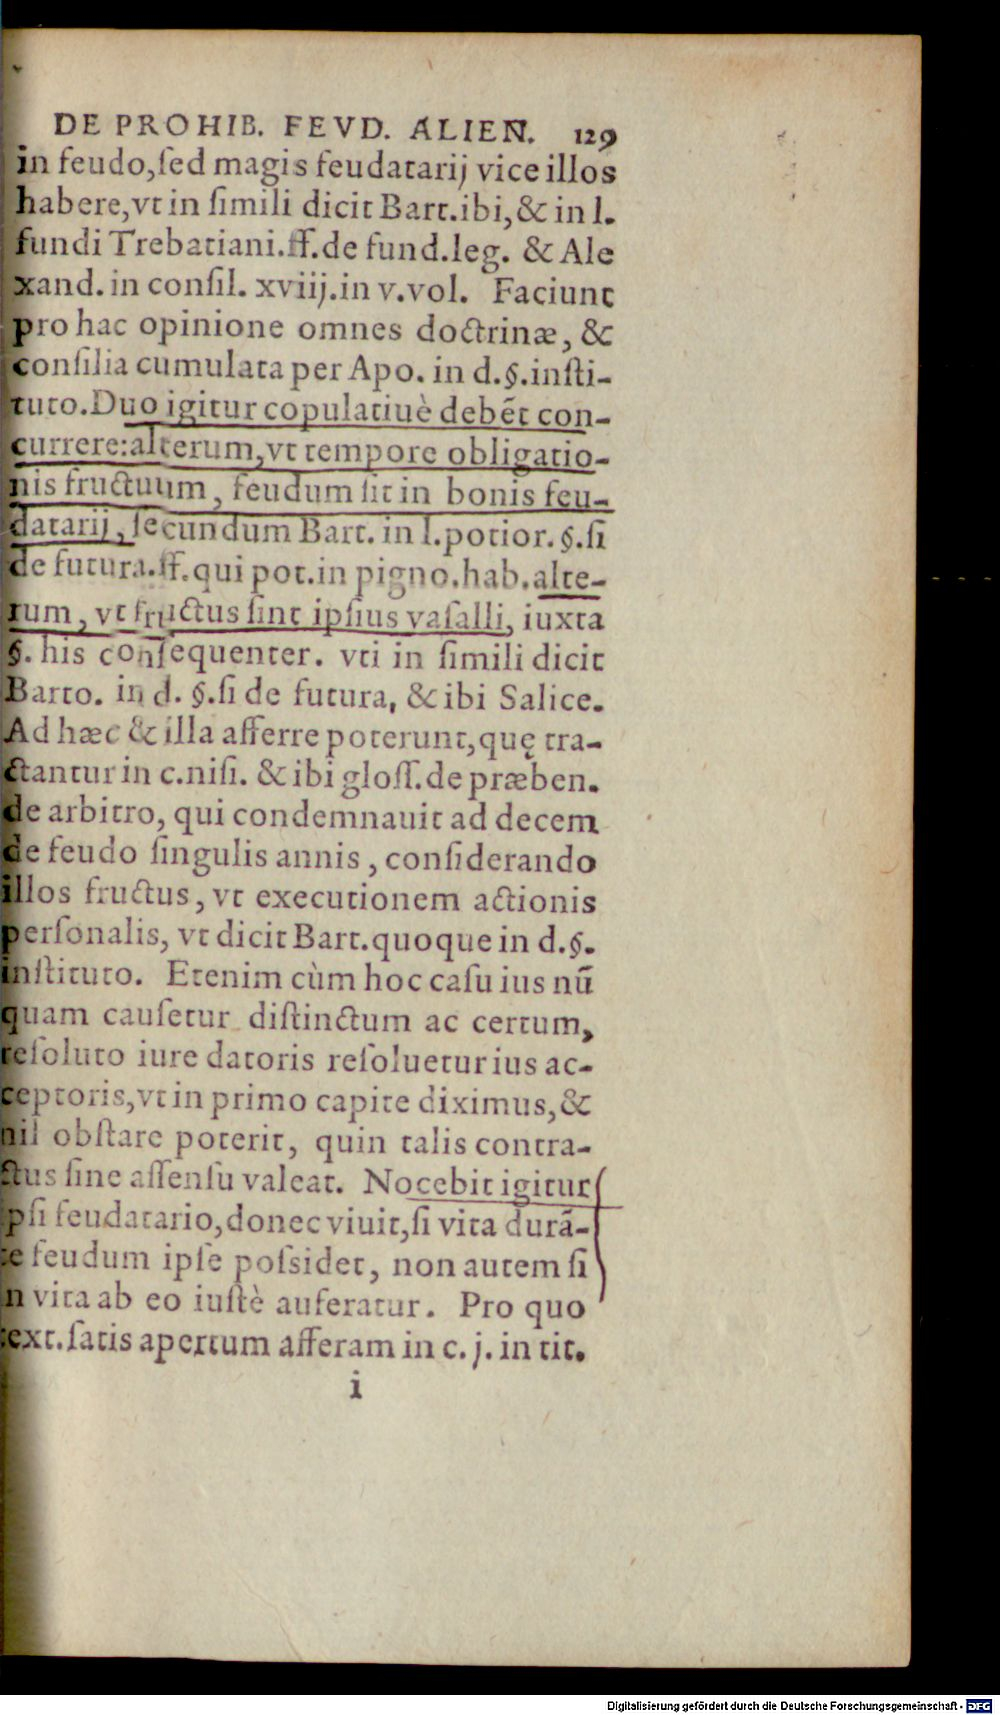 DE PROHIB. FEVD. ALIEN. 129
in feudo,ſed magis feudatarij vice illos
habere,vt in ſimili dicit Bart.ibi,& in l.
fundi Trebatiani.ff.de fund.leg. & Ale
xand. in conſil. xviij.in v.vol. Faciunt
pro hac opinione omnes doctrinæ, &
conſilia cumulata per Apo. in d.§.inſti-
tuto.Duo igitur copulatiuè debẽt con-
currere:alterum,vt tempore obligatio-
nis fructuum, feudum ſit in bonis feu-
datarij, ſecundum Bart. in l.potior. §.ſi
de futura.ff.qui pot.in pigno.hab.alte-
rum, vt fructus ſint ipſius vaſalli, iuxta
§. his conſequenter. vti in ſimili dicit
Barto. in d. §.ſi de futura, & ibi Salice.
Ad hæc & illa afferre poterunt,quę tra-
ctantur in c.niſi. & ibi gloſſ.de præben.
de arbitro, qui condemnauit ad decem
de feudo ſingulis annis, conſiderando
illos fructus, vt executionem actionis
perſonalis, vt dicit Bart.quoque in d.§.
inſtituto. Etenim cùm hoc caſu ius nũ
quam cauſetur diſtinctum ac certum,
reſoluto iure datoris reſoluetur ius ac-
ceptoris,vt in primo capite diximus,&
nil obſtare poterit, quin talis contra-
ctus ſine aſſenſu valeat. Nocebit igitur
ipſi feudatario,donec viuit,ſi vita durã-
te feudum ipſe poſsidet, non autem ſi
in vita ab eo iuſtè auferatur. Pro quo
text.ſatis apertum afferam in c. j. in tit.
i
Digitalisierung gefördert durch die Deutsche Forschungsgemeinschaft - DFG